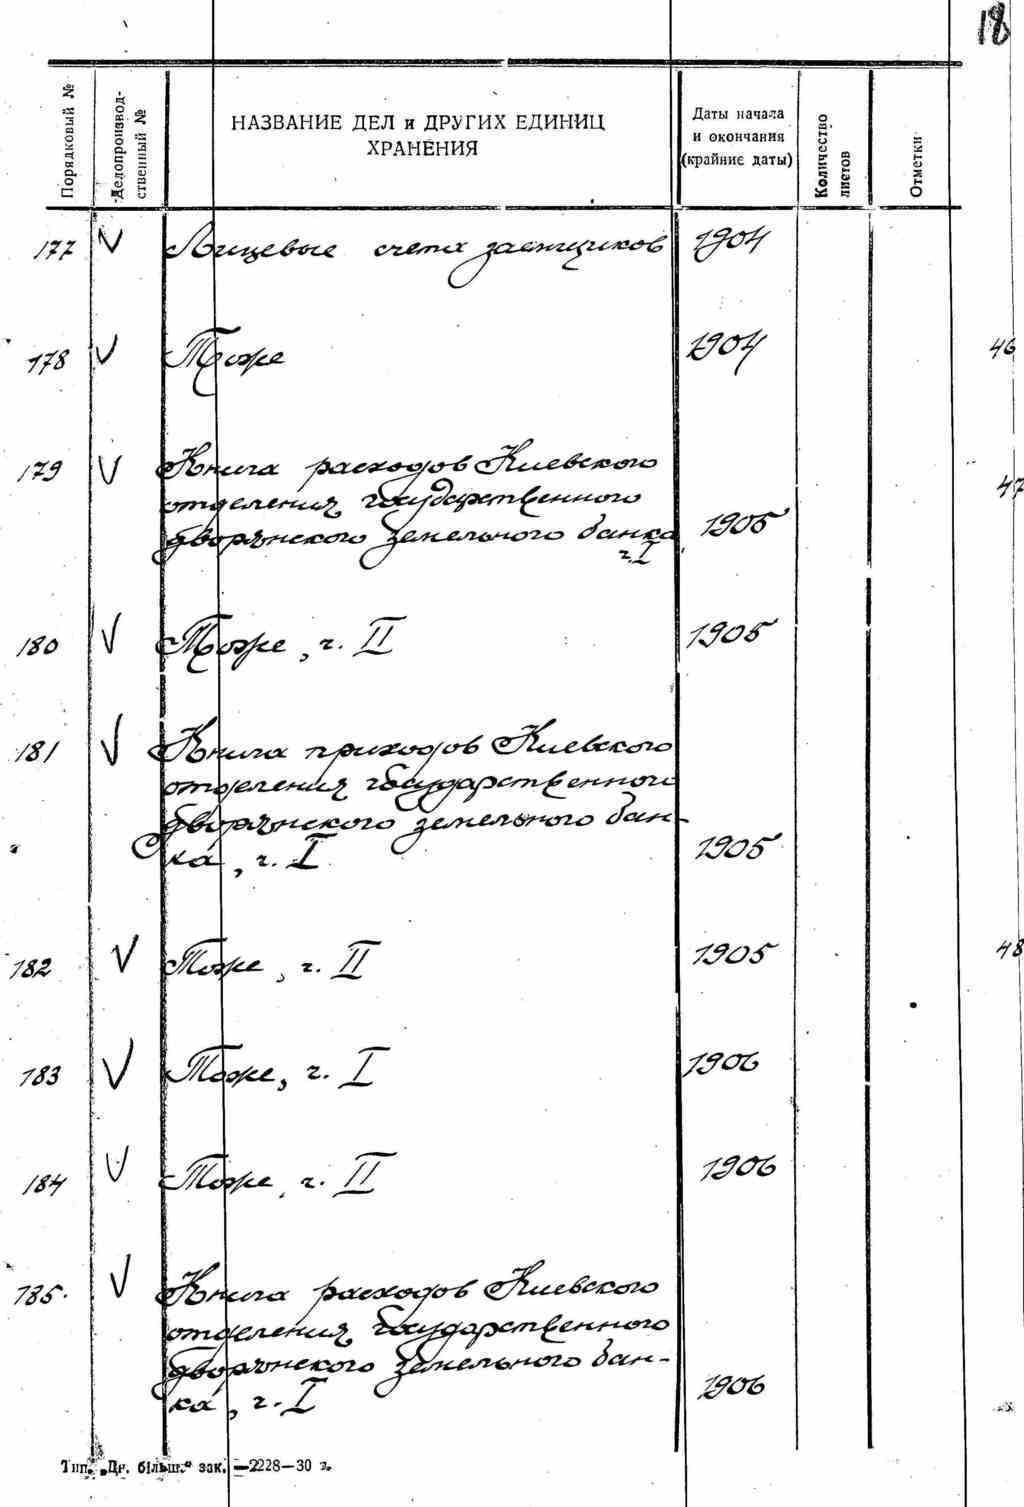 18
Порядковый №
Делопроизвод-
ственный №
НАЗВАНИЕ ДЕЛ и ДРУГИХ ЕДИНИЦ
ХРАНЕНИЯ
Даты начала
и окончания
(крайние даты)
Количество
листов
Отметки
177 V Лицевые счета заемщиков 1904
178 V Тоже 1904
46
179 V Книга расходов Киевского
отделения государственного
47
дворянского земельного банка 1905
ч. I
180 V Тоже, ч. II 1905
181 V Книга приходов Киевского
отделения государственного
дворянского земельного бан-
ка, ч. I 1905
182 V Тоже, ч. II 1905
48
183 V Тоже, ч. I 1906
184 V Тоже, ч. II 1906
185. V Книга расходов Киевского
отделения государственного
дворянского земельного бан-
ка, ч. I 1906
Тип. „Др. більш.“ зак. —2228—30 г.